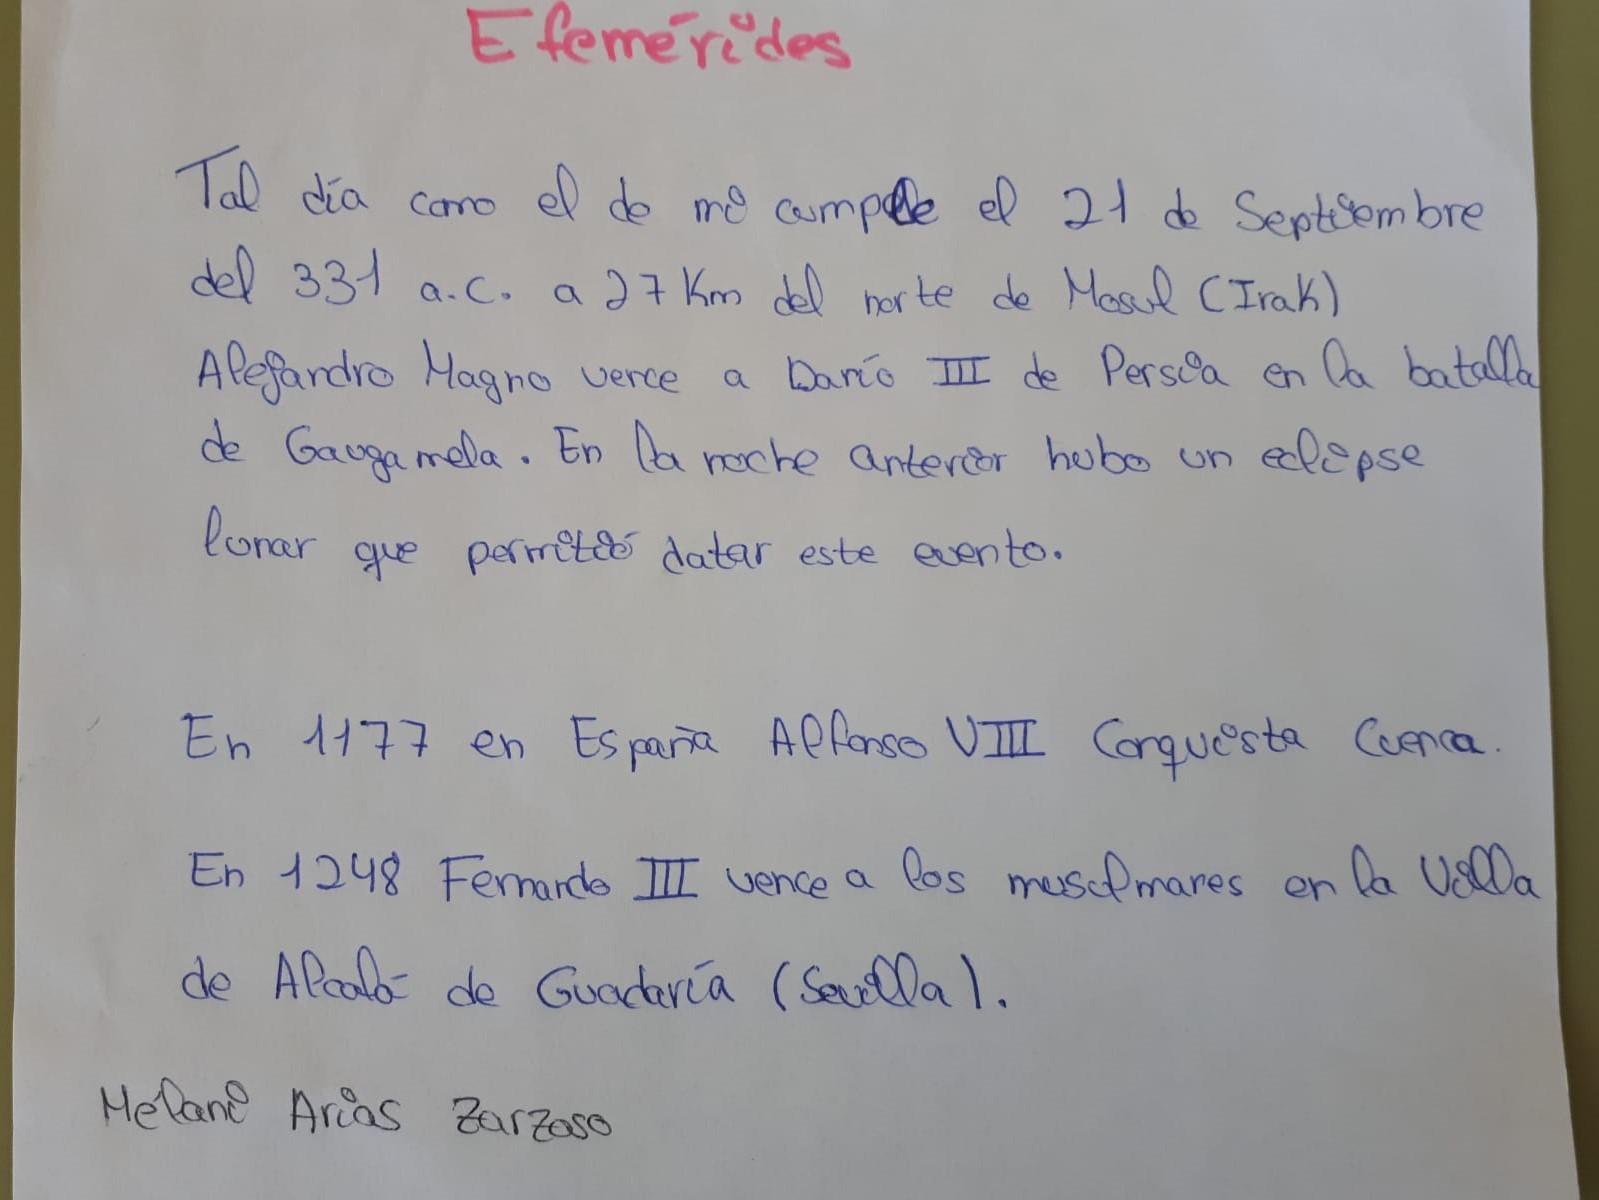 Efemérides
Tal día como el de mi cumple el 21 de Septiembre
del 331 a.c. a 27 Km del norte de Mosul (Irak)
Alejandro Magno vence a Darío III de Persia en la batalla
de Gaugamela. En la noche anterior hubo un eclipse
lunar que permitió datar este evento.
En 1177 en España Alfonso VIII Conquista Cuenca.
En 1248 Fernando III vence a los muselmanes en la Villa
de Alcalá de Guadaría (Sevilla).
Mélani Arias Zarzoso